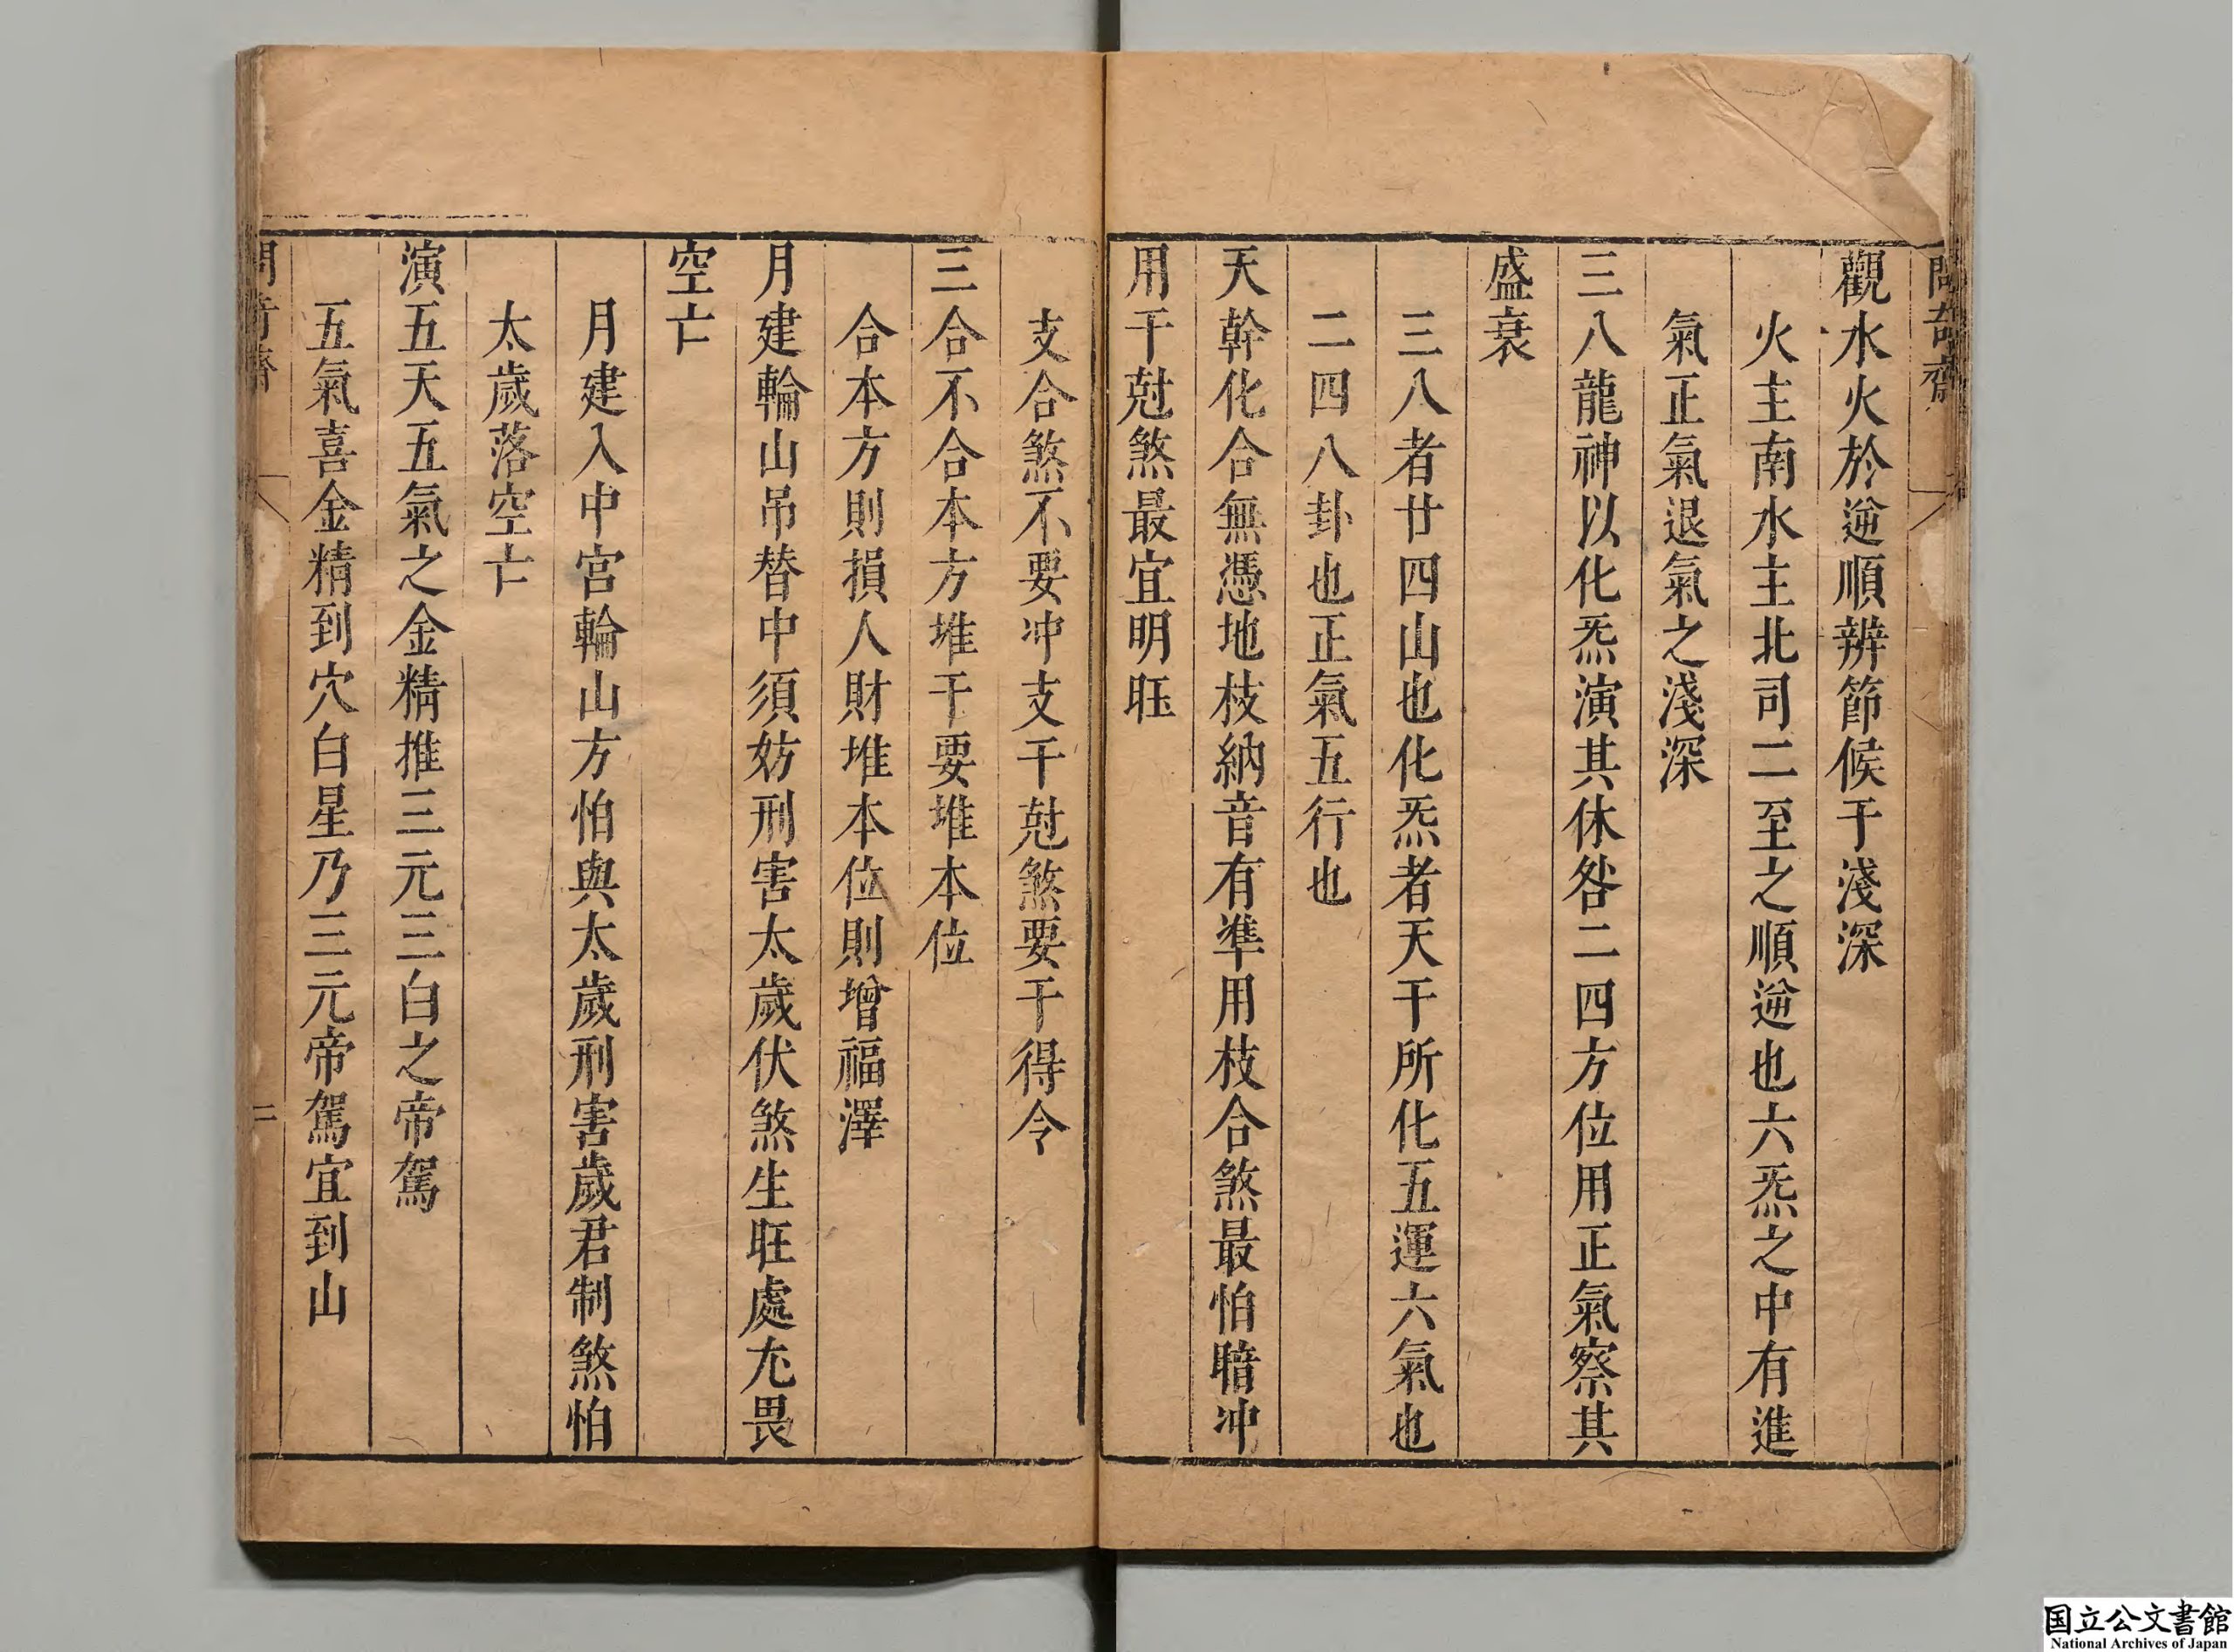 問奇齋
觀水火於逆順辨節候于淺深
火主南水主北司二至之順逆也六炁之中有進
氣正氣退氣之淺深
三八龍神以化炁演其休咎二四方位用正氣察其
盛衰
三八者廿四山也化炁者天干所化五運六氣也
二四八卦也正氣五行也
天幹化合無憑地枝納音有準用枝合煞最怕暗冲
用干尅煞最宜明旺
支合煞不要冲支干尅煞要干得令
三合不合本方堆干要堆本位
合本方則損人財堆本位則增福澤
月建輪山吊替中須妨刑害太歲伏煞生旺處尢畏
空亡
月建入中宮輪山方怕與太歲刑害歲君制煞怕
太歲落空亡
演五天五氣之金精推三元三白之帝駕
五氣喜金精到穴白星乃三元帝駕宜到山
問奇齋
二
国立公文書館
National Archives of Japan